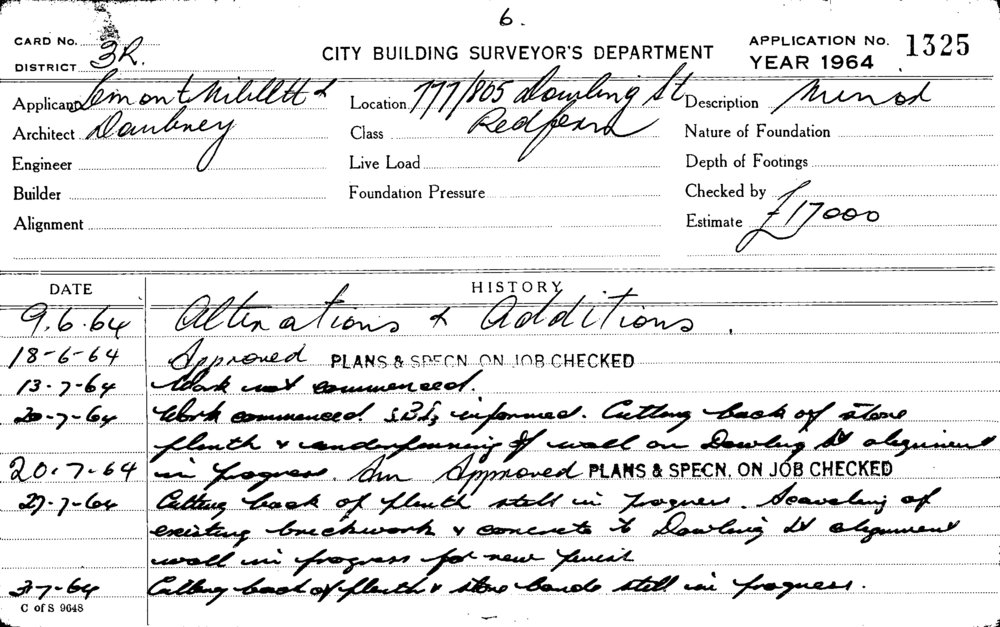 6.
CARD No.
DISTRICT 3R.
CITY BUILDING SURVEYOR'S DEPARTMENT
APPLICATION No. 1325
YEAR 1964
Applicant Lemont Niblett &
Location 777/805 Dowling St
Description Minod
Architect Daubney
Class Redfern
Nature of Foundation
Engineer
Live Load
Depth of Footings
Builder
Foundation Pressure
Checked by
Alignment
Estimate £17000
DATE HISTORY
9.6.64 Alterations & Additions.
18-6-64 Approved PLANS & SPECN. ON JOB CHECKED
13-7-64 Work not commenced.
20-7-64 Work commenced. informed. Cutting back of stone
plenth & underpinning of wall on Dowling St alignment
20.7.64 in progress. Approved PLANS & SPECN. ON JOB CHECKED
27-7-64 Cutting back of plenth still in progress. of
existing brickwork & concrete to Dowling St alignment
wall in progress for new finish
3-7-64 Cutting back of plenth & stone bands still in progress.
C of S 9648